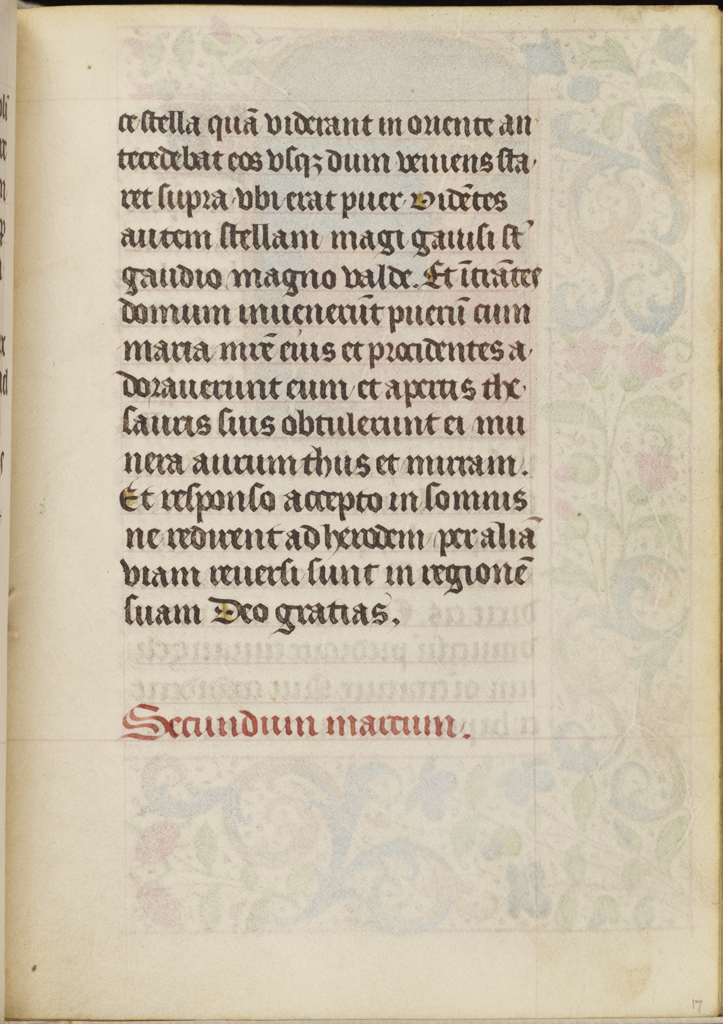 ce stella quā viderant in oriente an
tecedebat eos vsqꝫ dum veniens sta
ret supra vbi erat puer. Vidētes
autem stellam magi gauisi st̄
gaudio magno valde. Et ītrātes
domum inuenerūt puerū cum
maria mr̄e eius et procidentes a
dorauerunt eum et apertis the
sauris suis obtulerunt ei mu
nera aurum thus et mirram.
Et responso accepto in somnis
ne redirent ad herodem per aliā
viam reuersi sunt in regionē
suam Deo gratias.
Secundum marcum.
17